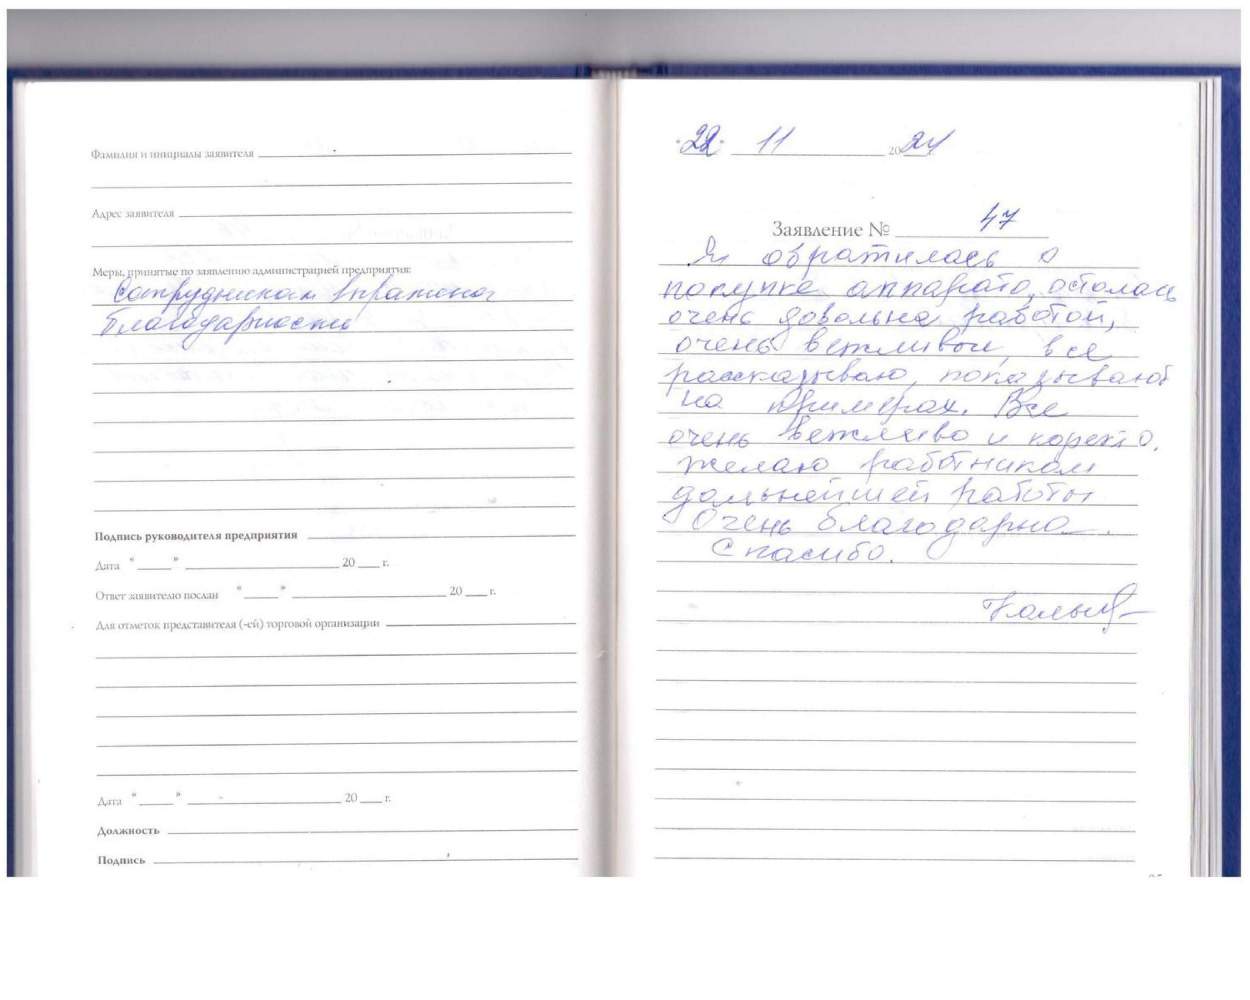 Фамилия и инициалы заявителя
Адрес заявителя
Меры, принятые по заявлению администрацией предприятия:
Сотрудникам
благодарность
Подпись руководителя предприятия
Дата " " 20 г.
Ответ заявителю послан " " 20 г.
Для отметок представителя (-ей) торговой организации
Дата " " 20 г.
Должность
Подпись
"22" 11 2021
Заявление № 47
Я обратилась о
покупке аппарата, осталась
очень довольна работой,
очень вежливы, все
рассказываю, показывают
на примерах. Все
очень вежливо и коректо.
желаю работникам
дальнейшей работы
Очень благодарна.
Спасибо.